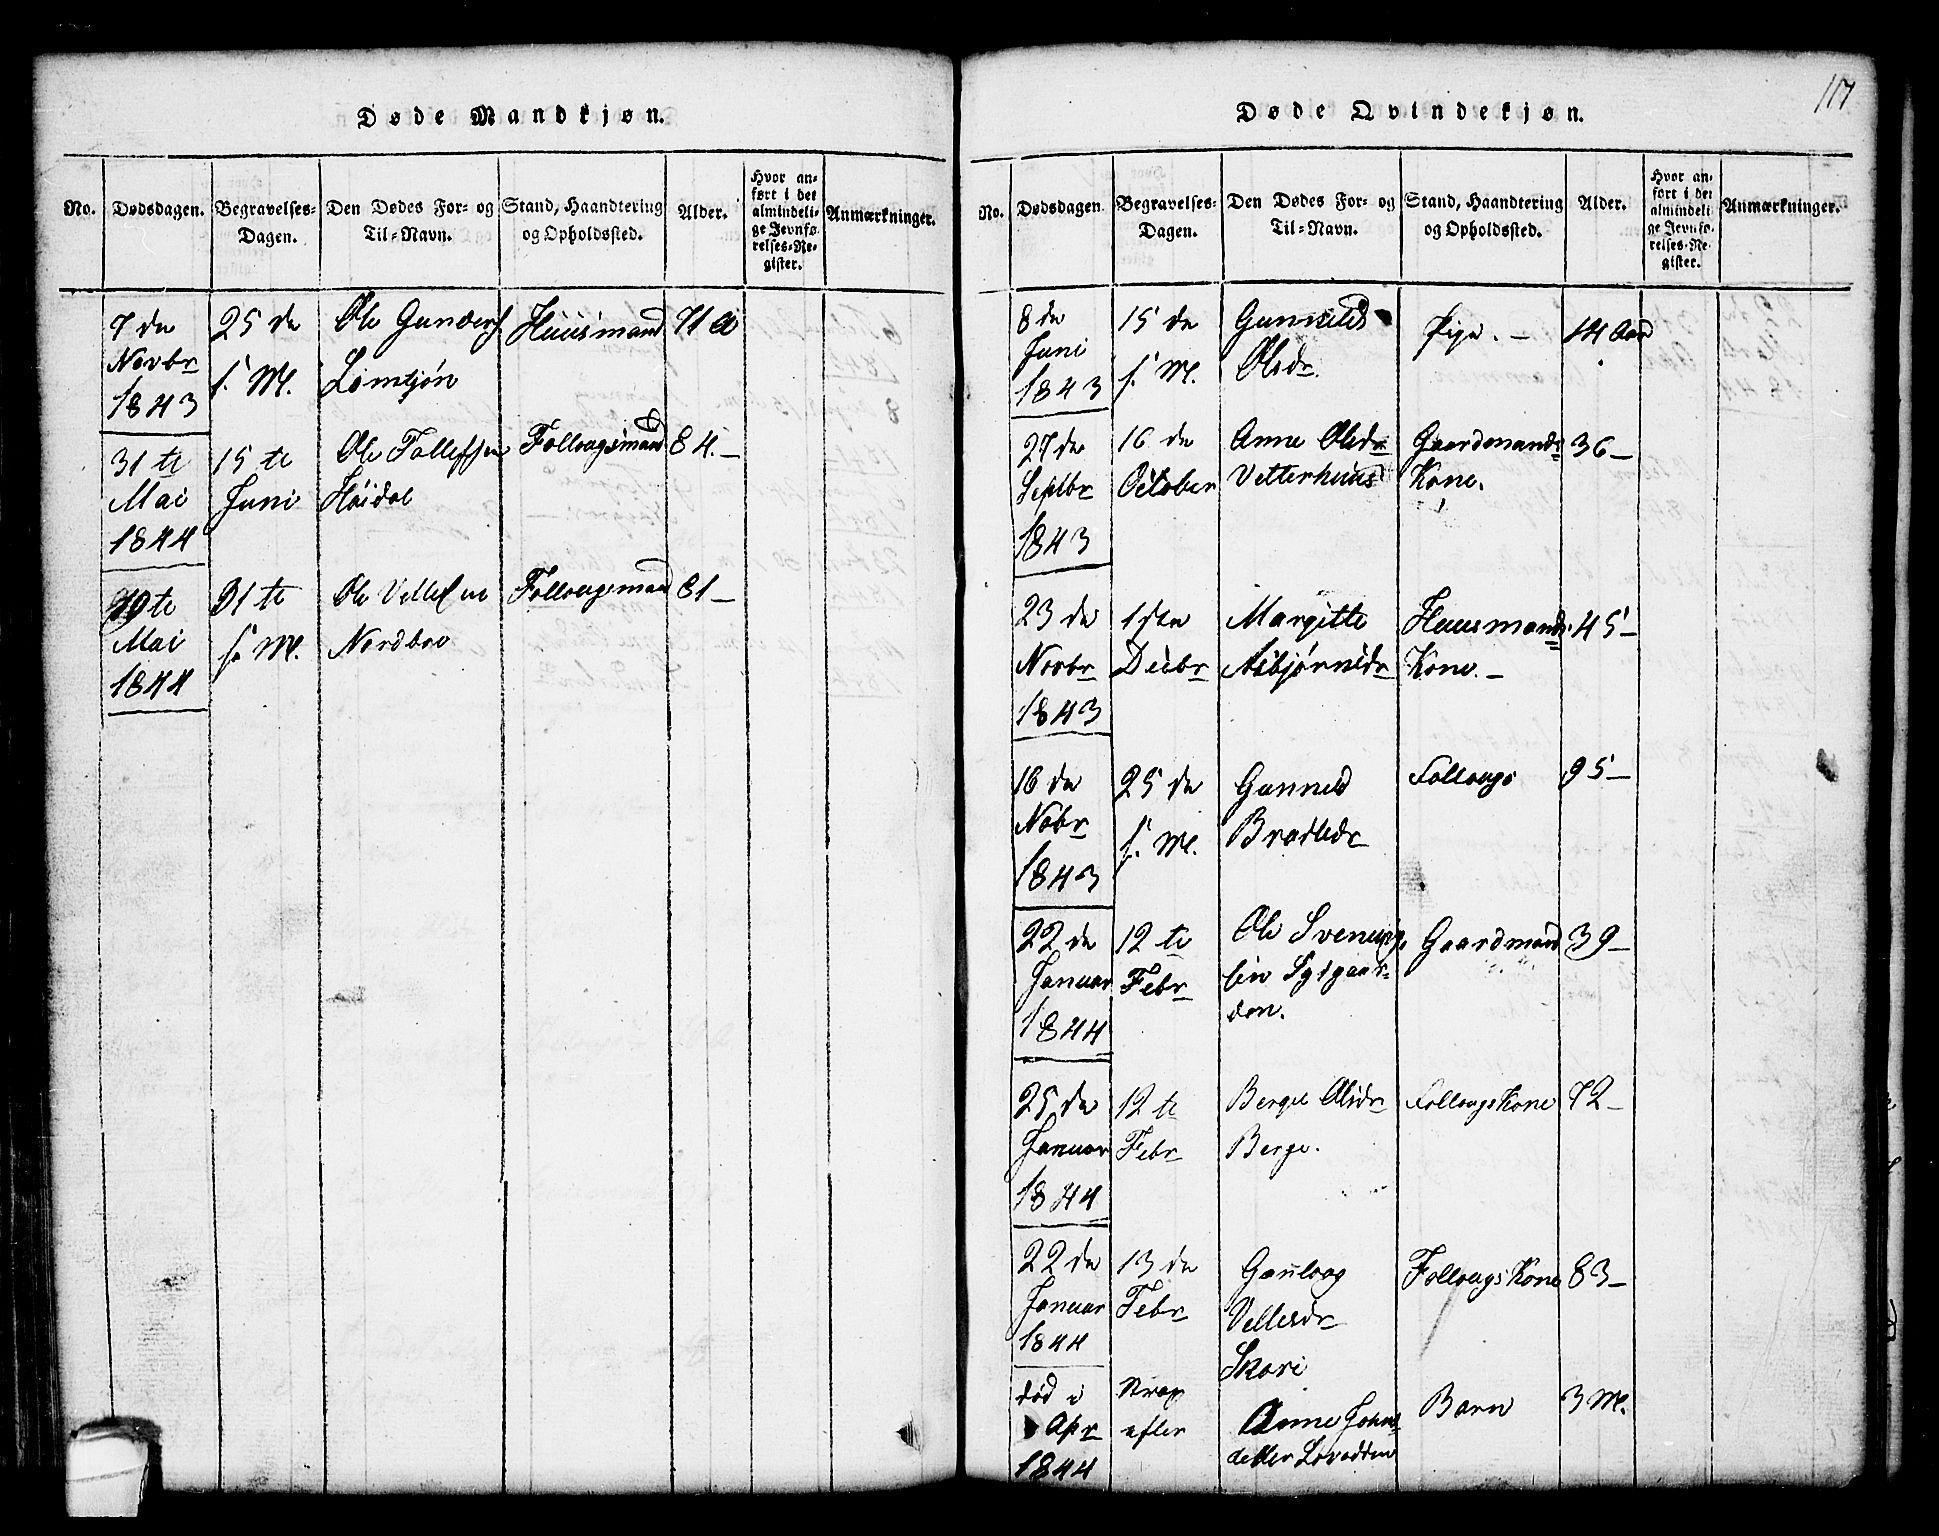 117
Døde Mandkjøn.
No. Dødsdagen. Begravelses-Dagen. Den Dødes For- og Til-Navn. Stand, Haandtering og Opholdssted. Alder. Hvor anført i det almindelige Jevnførelses-Register. Anmærkninger.
7 de 25 de Ole Gunders. Huusmand 71 A
Novbr s. M. Lomtjøn
1843
31 te 15 te Ole Tollefsen Follougsmand 84.-
Mai Juni Høidal
1844
te 31 te Ole Vetlesen Follougsmand 81-
Mai s. M. Nordboe
1844
Døde Qvindekjøn.
No. Dødsdagen. Begravelses-Dagen. Den Dødes For- og Til-Navn. Stand, Haandtering og Opholdssted. Alder. Hvor anført i det almindelige Jevnførelses-Register. Anmærkninger.
8 de 15 de Gunnild Pige. - 14 Aar
Juni s. M. Olsdr.
1843
27 de 16 de Anne Olsdr Gaardmands 36-
Septbr October Vetterhuus Kone.
1843
23 de 1ste Margitte Huusmands 45-
Novbr Decbr Asbjørnsdr Kone.-
1843
16 de 25 de Gunnild Follougs 95-
Nobr s. M. Brotledr
1843
22 de 12 te Ole Svenung- Gaardmand 39-
Januar Febr sen Sydgaar-
1844 den.
25 de 12 te Bergit Olsdr Follougs Kone 72-
Januar Febr Berge.
1844
22 de 13 de Gunloug Follougs Kone 83-
Januar Febr Vetlesdr
1844 Skori
død i Strax Anne Johns Barn 3 M.
Apr efter datter
1844